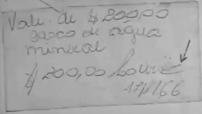 Vale de $ 200,00
gasto de agua
mineral
$ 200,00
17/1/66